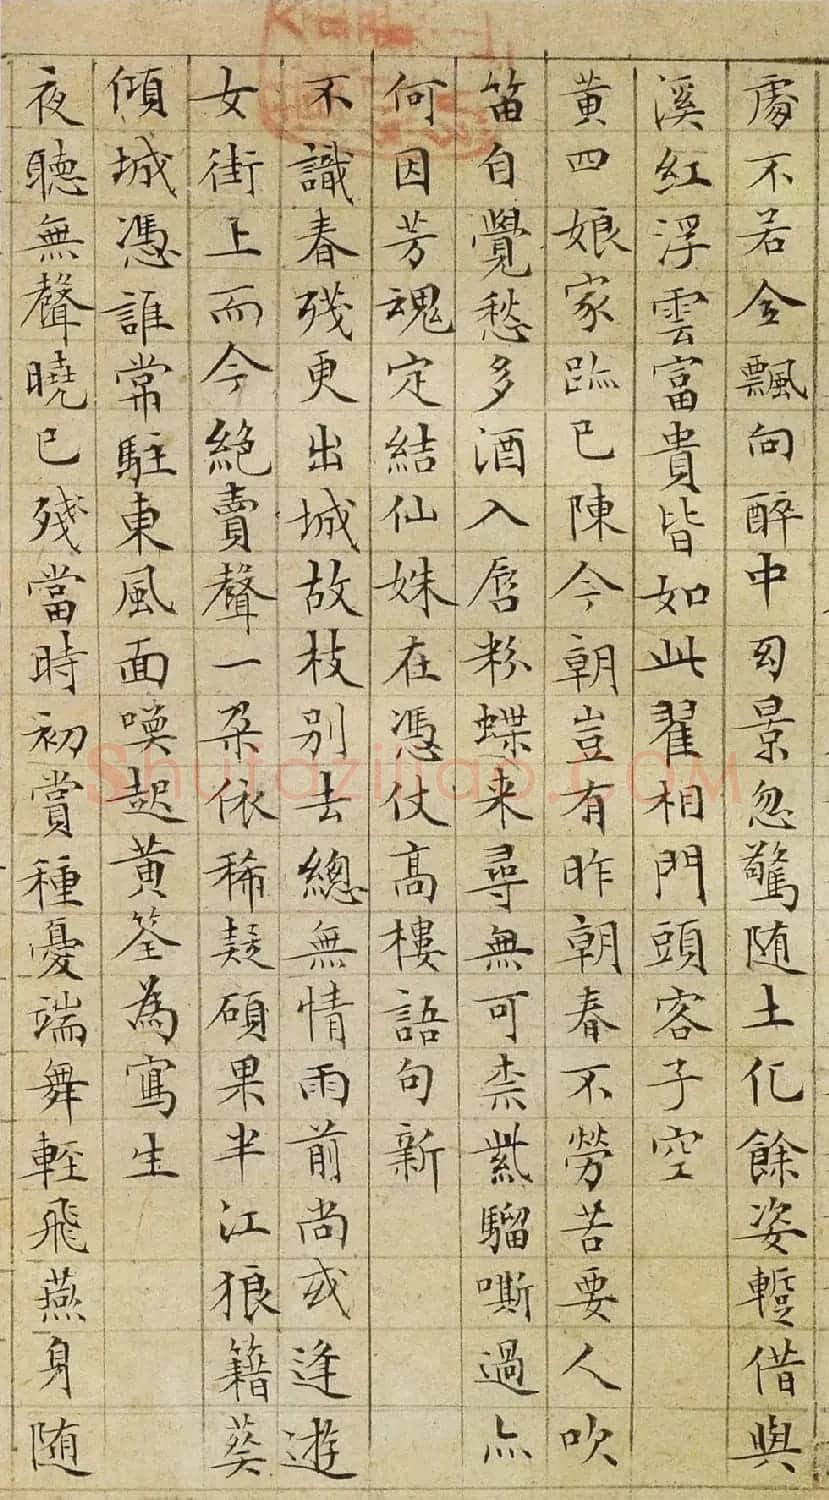 處不若令飄向醉中句景忽驚随土化餘姿蹔借與
溪紅浮雲富貴皆如此翟相門頭客子空
黄四娘家跡已陳今朝豈有昨朝春不勞苦要人吹
笛自覺愁多酒入唇粉蝶来尋無可柰紫騮嘶過亦
何因芳魂定結仙姝在憑仗高樓語句新
不識春残更出城故枝别去總無情雨前尚或逢遊
女街上而今絶賣聲一朶依稀疑碩果半江狼籍葵
傾城憑誰常駐東風面喚起黄筌為寫生
夜聽無聲曉已殘當時初賞種憂端舞輕飛燕身随
Shufaziliao.com